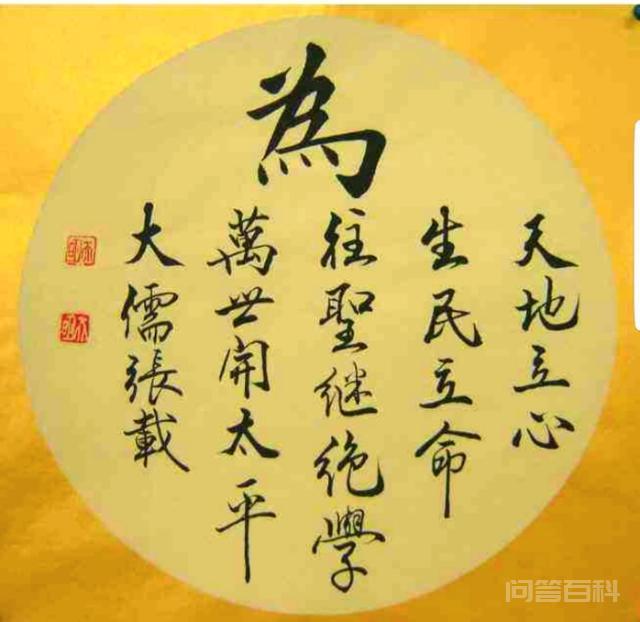 為
天地立心
生民立命
往聖継絶學
萬世開太平
大儒張載
问答百科